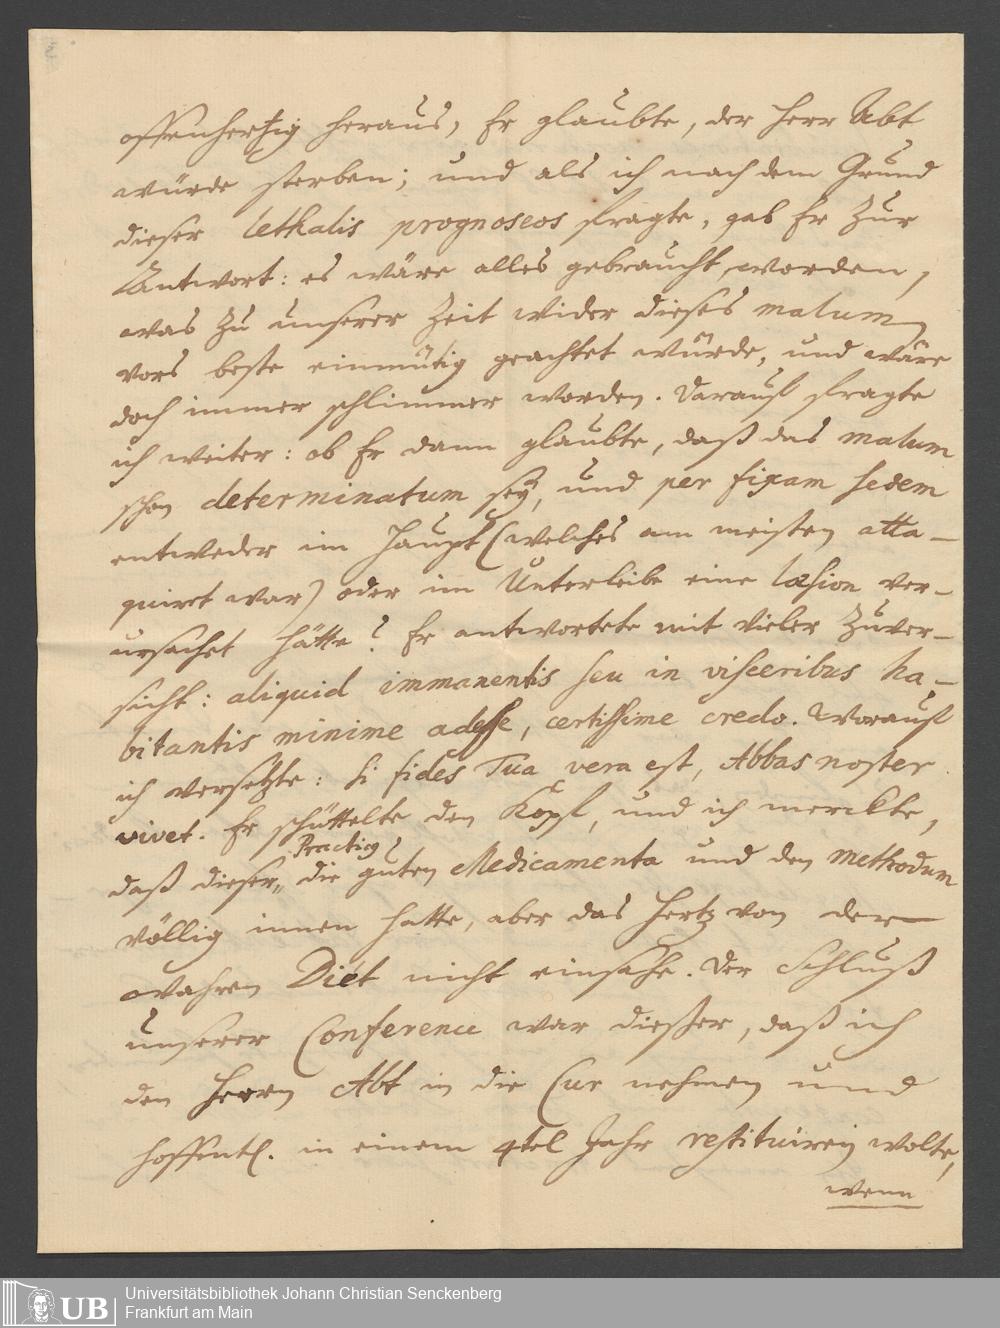 offenhertzig heraus, Er glaubte, der Herr Abt
würde sterben; und als ich nach dem Grund
dieser lethalis prognoseos fragte, gab Er zur
Antwort: es wäre alles gebraucht worden,
was zu unserer Zeit wider dieses malum
vors beste einmütig geachtet würde, und wäre
doch immer schlimmer worden. Darauf fragte
ich weiter: ob Er dann glaubte, daß das malum
schon determinatum sey, und per fixam sedem
entweder im Haupt (welches am meisten atta-
quirct war) oder im Unterleibe eine læsion ver-
ursachet hätte? Er antwortete mit vieler Zuver-
sicht: aliquid immanentis seu in visceribus ha-
bitantis minime adesse, certissime credo. Worauf
ich versetzte: si fides Tua vera est, Abbas noster
vivet. Er schüttelte den Kopf, und ich merckte,
Practicg
daß dieser, die guten Medicamenta und den Methodum
völlig innen hatte, aber das Hertz von der
wahren Diët nicht einsahe. Der Schluß
unserer Conference war dießer, daß ich
den Herrn Abt in die Cur nehmen und
hoffentl. in einem 4tel Jahr restituiren wolte,
wenn
Universitätsbibliothek Johann Christian Senckenberg
Frankfurt am Main
UB